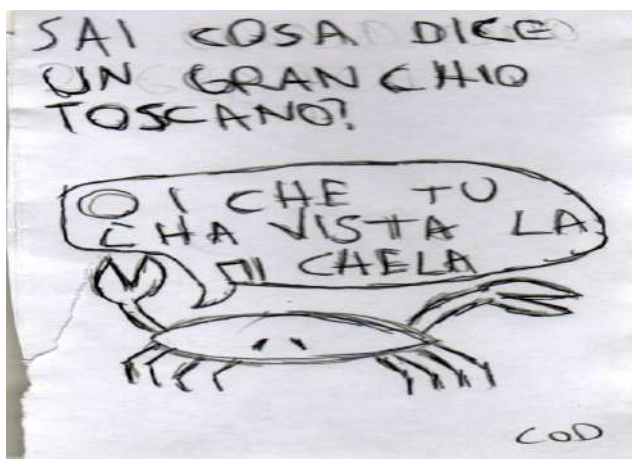 SAI COSA DICE
UN GRANCHIO
TOSCANO?
OI CHE TU
CHA VISTA LA
MI CHELA
COD